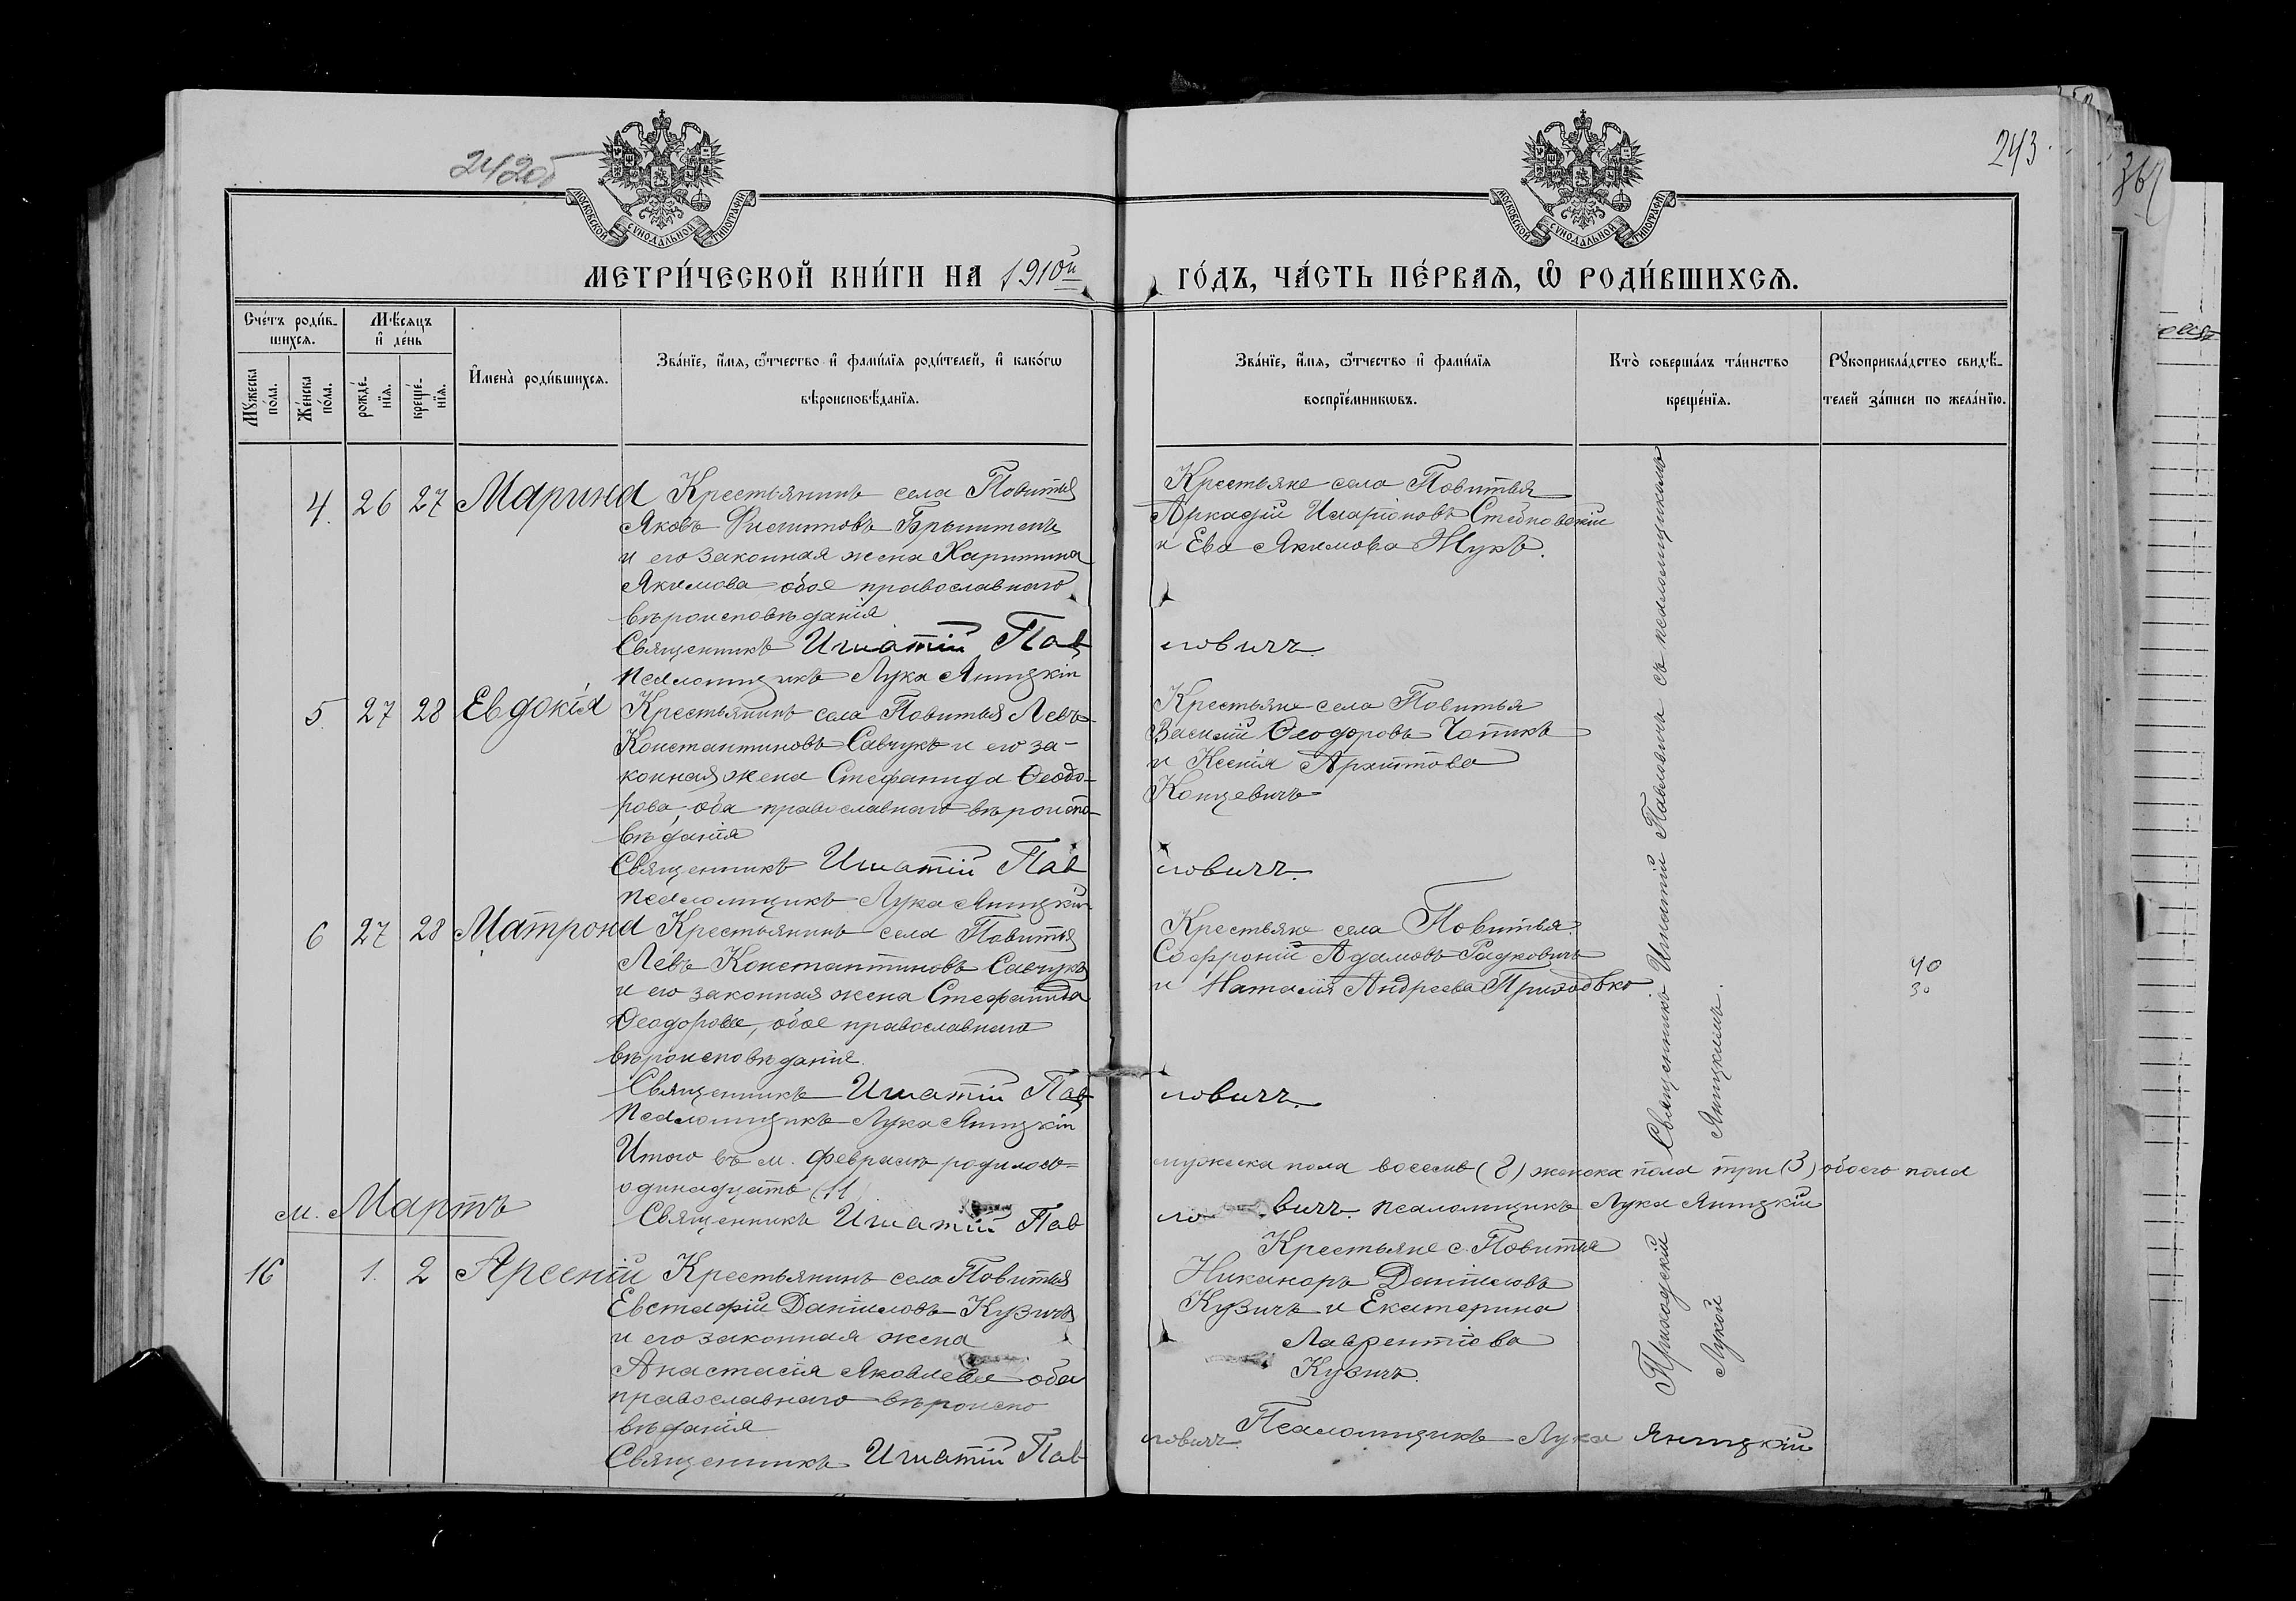 242об
243
МОСКОВСКОЙ СУНОДАЛЬНОЙ ТИПОГРАФІИ
МОСКОВСКОЙ СУНОДАЛЬНОЙ ТИПОГРАФІИ
МЕТРИ́ЧЕСКОЙ КНИ́ГИ НА 1910й ГО́ДЪ, ЧА́СТЬ ПЕ́РВАѦ, Ѽ РОДИ́ВШИХСѦ.
Сче́тъ роди́в-
шихсѧ.
Мѣ́сѧцъ
и҆ де́нь
Мꙋ́жеска по́ла.
Же́нска по́ла.
рожде́-
нїѧ.
креще́-
нїѧ.
И҆мена̀ роди́вшихсѧ.
Зва́нїе, и҆́мѧ, ѻ҆́тчество и҆ фами́лїѧ роди́телей, и҆ како́гѡ
вѣроисповѣ́данїѧ.
Зва́нїе, и҆́мѧ, ѻ҆́тчество и҆ фами́лїѧ
воспрїе́мникѡвъ.
Кто̀ соверша́лъ та́инство
креще́нїѧ.
Рꙋкоприкла́дство свидѣ́-
телей за́писи по жела́нїю.
4. 26 27 Марина
Крестьянинъ села Повитья
Яковъ
и его законная жена Харитина
Якимова обое православнаго
вѣроисповѣданія
Священникъ Игнатій Пав
ловичъ.
Псаломщикъ Лука Яницкій
Крестьяне села Повитья
Аркадій Иларіоновъ
и Ева Якимова Жукъ.
5. 27 28 Евдокія
Крестьянинъ села Повитья Левъ
Константиновъ Савчукъ и его за-
конная жена Стефанида Ѳеодо-
рова, оба православнаго вѣроиспо-
вѣданія
Священникъ Игнатій Пав
ловичъ.
Псаломщикъ Лука Яницкій
Крестьяне села Повитья
Василій Ѳеодоровъ
и Ксенія Архиппова
Концевичъ
6 27 28 Матрона
Крестьянинъ села Повитья
Левъ Константиновъ Савчукъ
и его законная жена Стефанида
Ѳеодорова, обое православнаго
вѣроисповѣданія.
Священникъ Игнатій Пав
ловичъ.
Псаломщикъ Лука Яницкій
Крестьяне села Повитья
Софроній Адамовъ Радковичъ
и Наталія Андреева Приходько
40
30
Священникъ Игнатій Павловичъ съ псаломщикомъ
Яницкимъ.
Итого въ м. февралѣ родилось=
мужеска пола восемь (8) женска пола три (3) обоего пола
одинадцать (11)
Священникъ Игнатій Пав
ловичъ. псаломщикъ Лука Яницкій
м. Мартъ
16 1. 2 Арсеній
Крестьянинъ села Повитья
Евстафій Даніиловъ Кузичъ
и его законная жена
Анастасія Яковлева оба
православнаго вѣроиспо
вѣданія
Священникъ Игнатій Пав
ловичъ. Псаломщикъ Лука Яницкій
Крестьяне с. Повитья
Никаноръ Даніиловъ
Кузичъ и Екатерина
Лаврентіева
Кузичъ.
Приходскій
Лукой